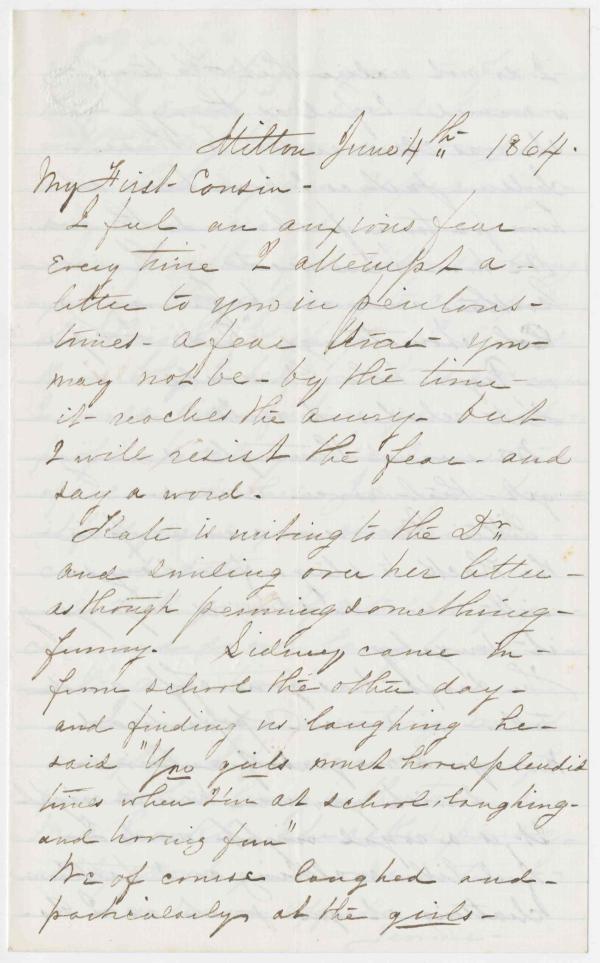 Milton June 4th 1864.
My First Cousin -
I feel an anxious fear
every time I attempt a -
letter to you in perilous -
times - a fear that you -
may not be - by the time -
it reaches the army - but
I will resist the fear - and
say a word.
Kate is writing to the Dr
and smiling over her letter -
as though penning something -
funny. Sidney, came in -
from school the other day -
and finding us laughing he -
said "You girls must have splendid
times when I'm at school, laughing -
and having fun"
We of course laughed and -
particularly at the girls -